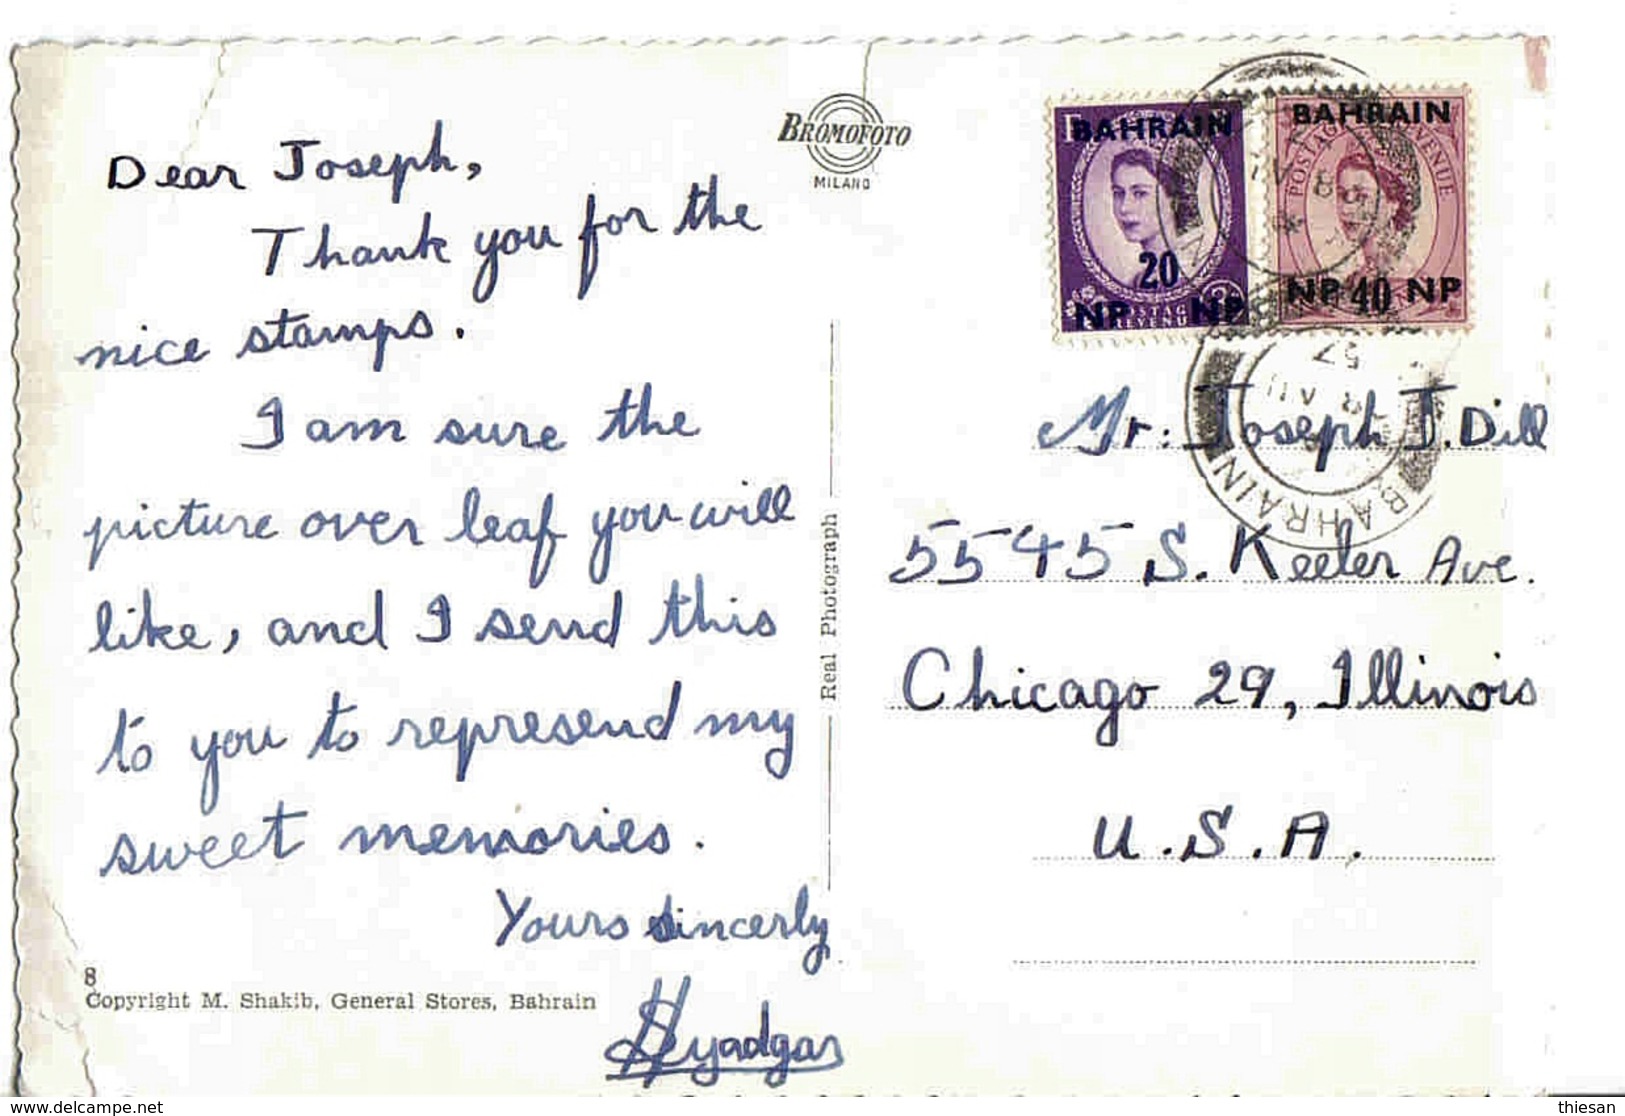 Dear Joseph,
Thank you for the
nice stamps.
I am sure the
picture over leaf you will
like, and I send this
to you to represend my
sweet memories.
Yours sincerly
8
Copyright M. Shakib, General Stores, Bahrain
BROMOFOTO
MILANO
Real Photograph
BAHRAIN
20
NP NP
POSTAGE
REVENUE
BAHRAIN
POSTAGE REVENUE
NP 40 NP
57
BAHRAIN
Mr: Joseph J. Dill
5545 S. Keeler Ave.
Chicago 29, Illinois
U.S.A.
delcampe.net
thiesan